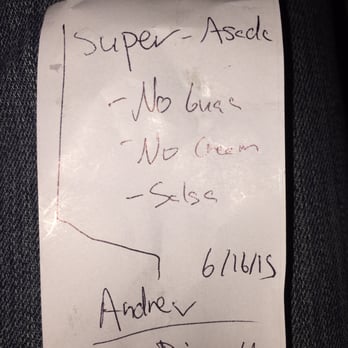 Super - Asada
- No Guac
- No Cream
- Salsa
6/16/15
Andrew